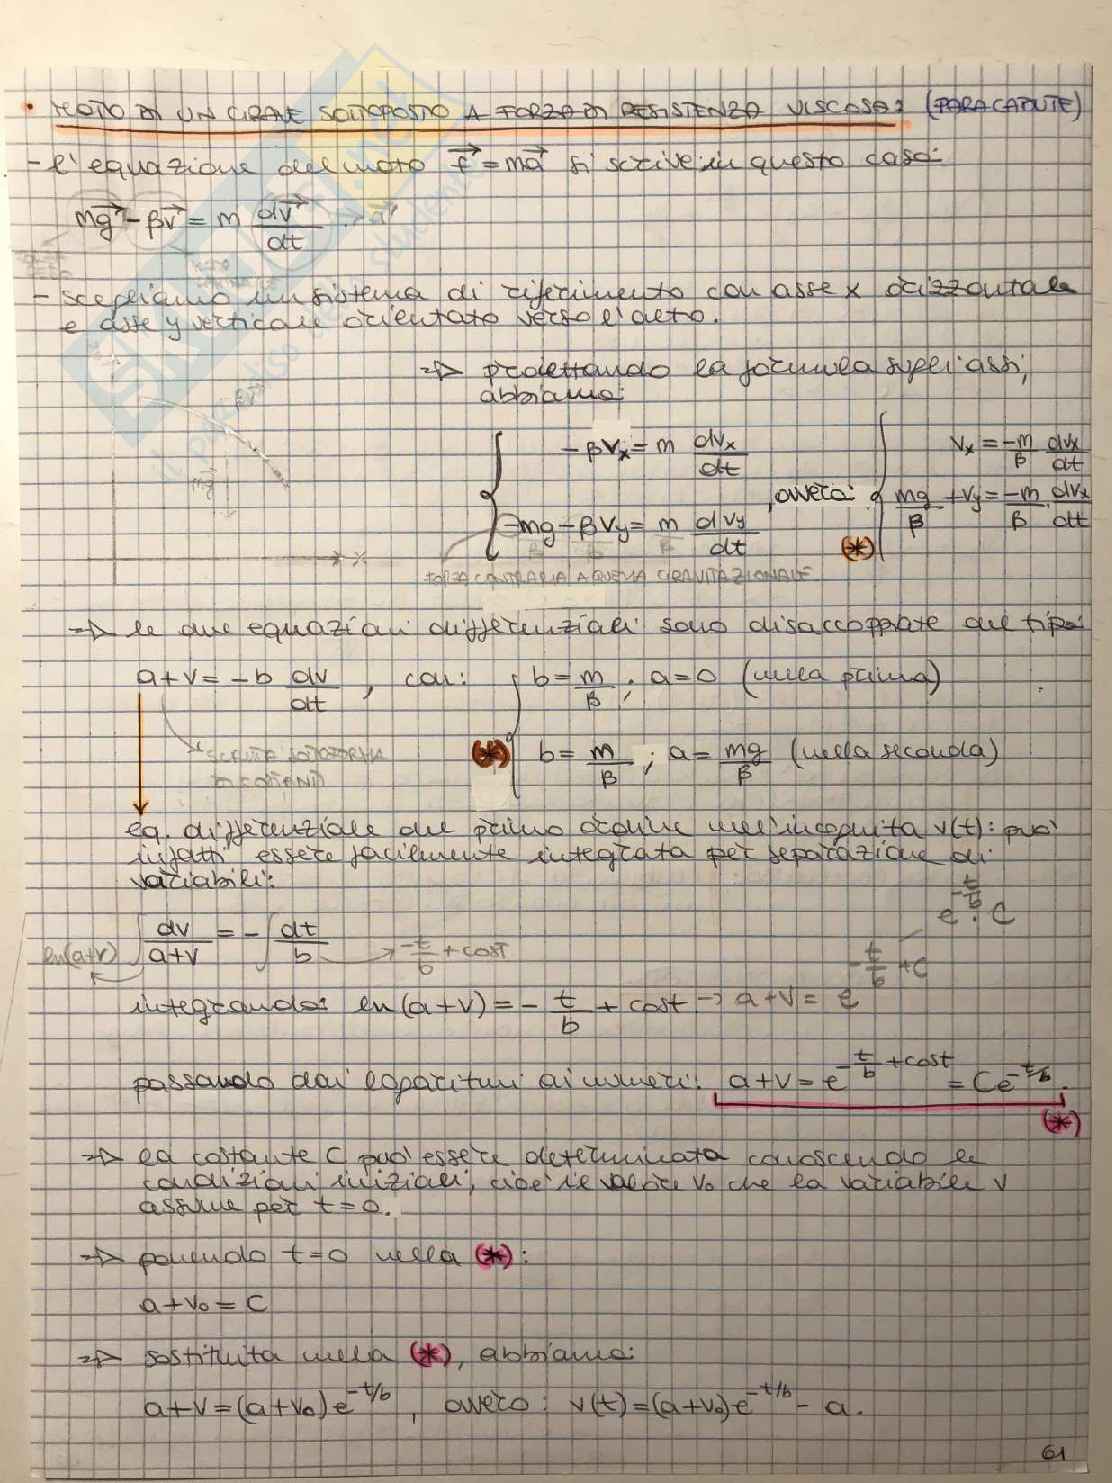 • MOTO DI UN GRAVE SOTTOPOSTO A FORZA DI RESISTENZA VISCOSA: (PARACADUTE)
- l'equazione del moto F⃗ = ma⃗ si scrive in questo caso:
mg⃗ - βv⃗ = m dv⃗/dt → a⃗
- scegliamo un sistema di riferimento con asse x orizzontale
e asse y verticale orientato verso l'alto.
⇒ proiettando la formula sugli assi,
abbiamo:
βv⃗
mg⃗
x
{ -βVx = m dVx/dt
-mg - βVy = m dVy/dt
, ovvero: { Vx = -m/β dVx/dt
mg/β + Vy = -m/β dVx/dt
(*)
FORZA CONTRARIA A QUELLA GRAVITAZIONALE
⇒ le due equazioni differenziali sono disaccoppiate del tipo:
a+v = -b dv/dt , con: { b = m/β ; a=0 (nella prima)
(*) b = m/β ; a = mg/β (nella seconda)
eq. differenziale del primo ordine nell'incognita v(t): può
infatti essere facilmente integrata per separazione di
variabili:
e^(-t/b) · C
ln(a+v) ∫ dv/(a+v) = - ∫ dt/b → -t/b + cost
-t/b + C
integrando: ln(a+v) = - t/b + cost → a+v = e
passando dai logaritmi ai numeri: a+v = e^(-t/b + cost) = Ce^(-t/b).
(*)
⇒ la costante C può essere determinata conoscendo le
condizioni iniziali, cioè il valore v₀ che la variabile v
assume per t=0.
⇒ ponendo t=0 nella (*):
a+v₀ = C
⇒ sostituita nella (*), abbiamo:
a+v = (a+v₀)e^(-t/b) , ovvero: v(t) = (a+v₀)e^(-t/b) - a.
61